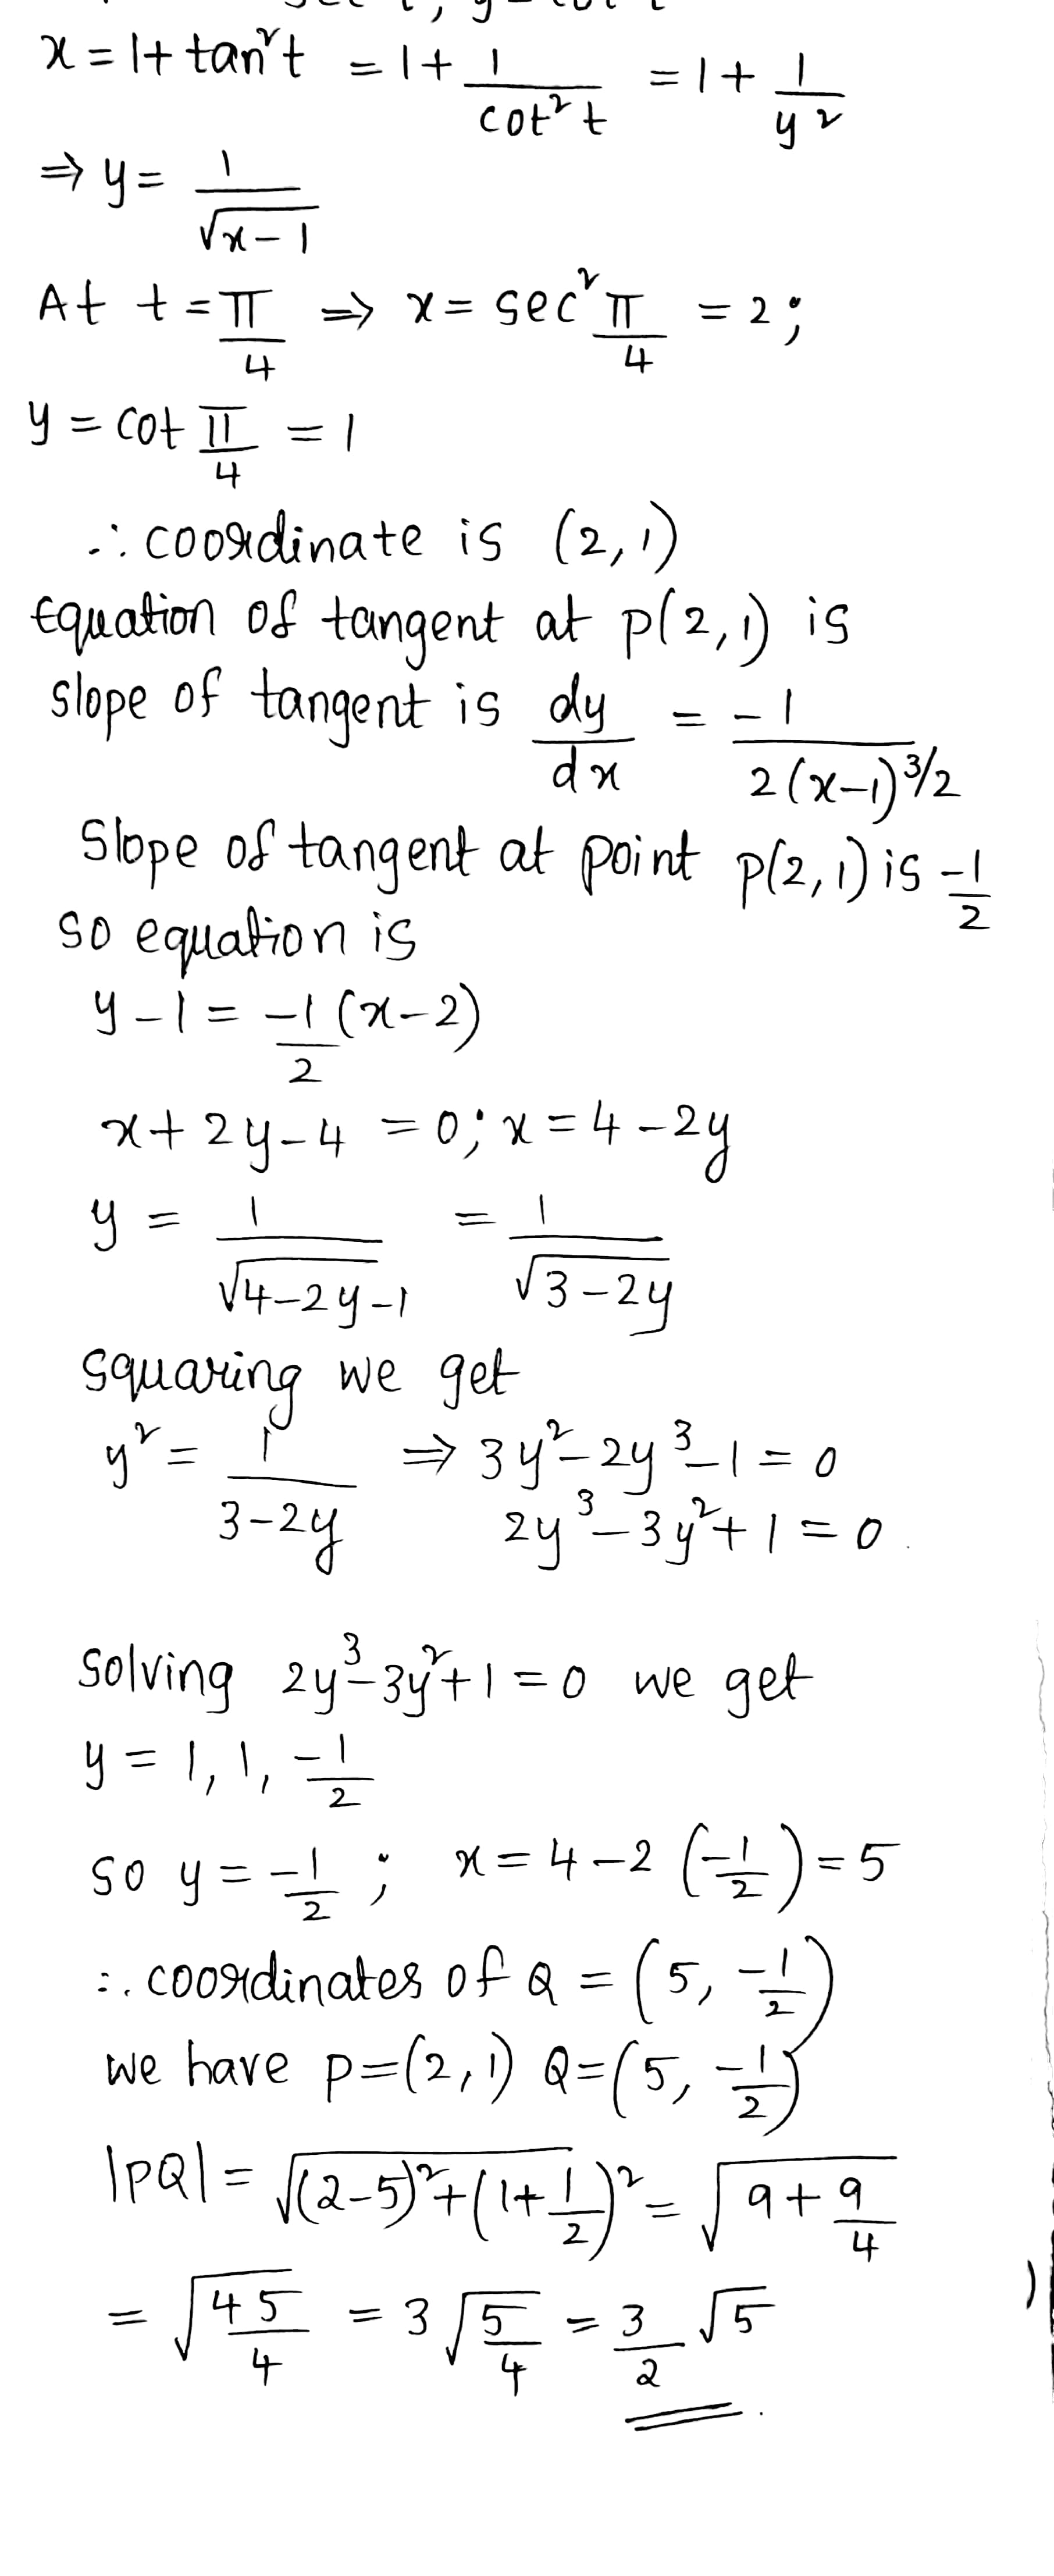 x = 1 + tan²t = 1 + 1/cot²t = 1 + 1/y²
⇒ y = 1/√(x-1)
At t = π/4 ⇒ x = sec² π/4 = 2;
y = cot π/4 = 1
∴ coordinate is (2,1)
Equation of tangent at p(2,1) is
slope of tangent is dy/dx = -1/2(x-1)^3/2
Slope of tangent at point p(2,1) is -1/2
so equation is
y-1 = -1/2 (x-2)
x+2y-4 = 0; x = 4-2y
y = 1/√(4-2y-1) = 1/√(3-2y)
squaring we get
y² = 1/(3-2y) ⇒ 3y²-2y³-1 = 0
2y³-3y²+1 = 0
solving 2y³-3y²+1 = 0 we get
y = 1, 1, -1/2
so y = -1/2; x = 4-2(-1/2) = 5
∴ coordinates of Q = (5, -1/2)
we have p=(2,1) Q=(5, -1/2)
|pQ| = √((2-5)²+(1+1/2)²) = √(9+9/4)
= √(45/4) = 3√(5/4) = 3/2 √5